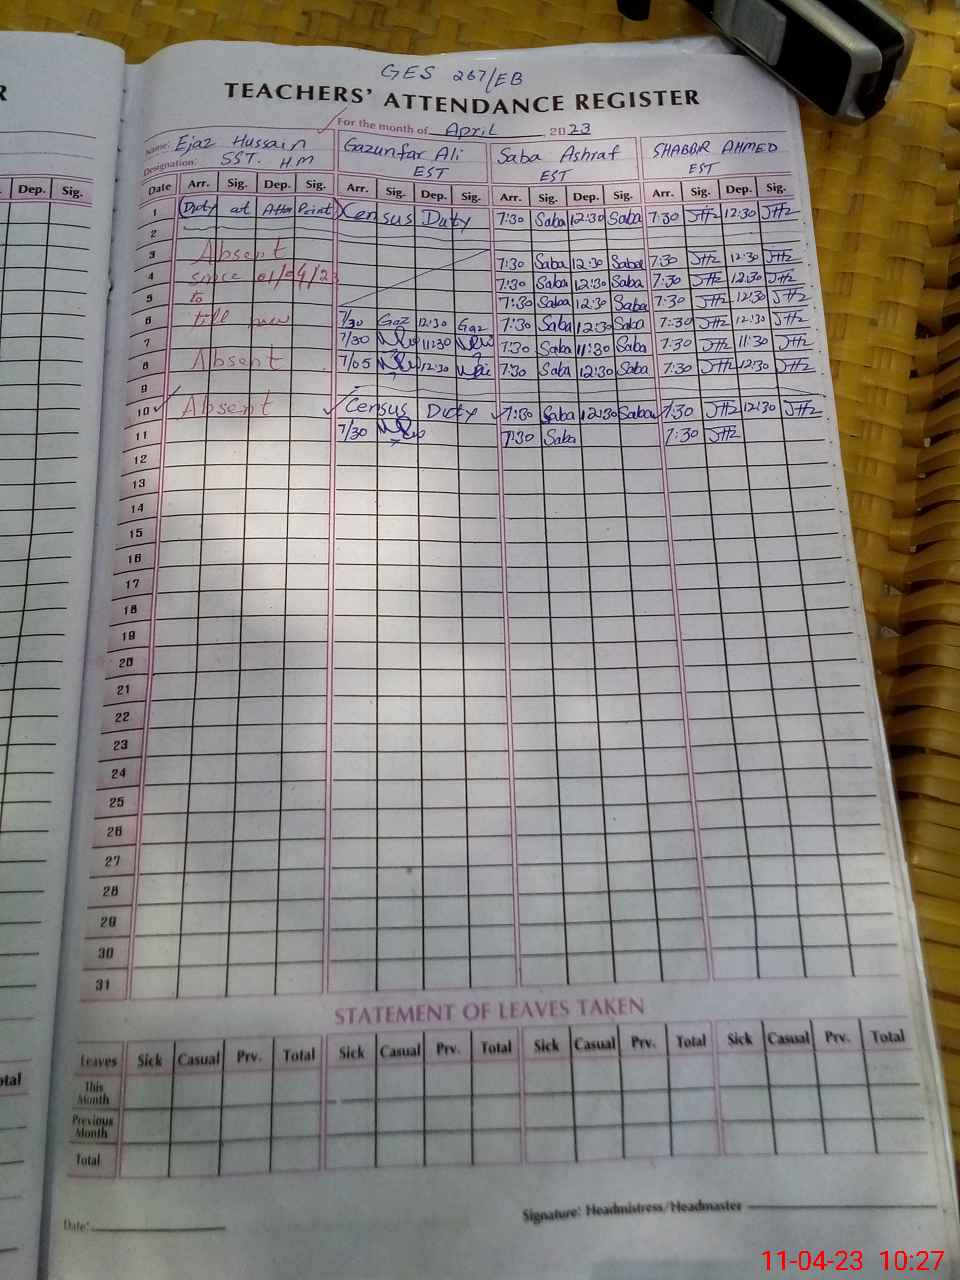 GES 267/EB
R
TEACHERS' ATTENDANCE REGISTER
For the month of April 2023
Name: Ejaz Hussain Gazunfar Ali Saba Ashraf SHABBIR AHMED
Designation: SST. HM EST EST EST
Dep. Sig. Date Arr. Sig. Dep. Sig. Arr. Sig. Dep. Sig. Arr. Sig. Dep. Sig. Arr. Sig. Dep. Sig.
1 Duty at Point Census Duty 7:30 Saba 12:30 Saba 7:30 12:30
2
3 Absent 7:30 Saba 12:30 Saba 7:30 12:30
4 since 01/04/23 7:30 Saba 12:30 Saba 7:30 12:30
5 to 7:30 Saba 12:30 Saba 7:30 12:30
6 till now 7/30 Gaz 12:30 Gaz 7:30 Saba 12:30 Saba 7:30 12:30
7 7/30 11:30 7:30 Saba 11:30 Saba 7:30 11:30
8 Absent 7/05 12:30 7:30 Saba 12:30 Saba 7:30 12:30
9
10 Absent Census Duty 7:30 Saba 12:30 Saba 7:30 12:30
11 7/30 7:30 Saba 7:30
12
13
14
15
16
17
18
19
20
21
22
23
24
25
26
27
28
29
30
31
STATEMENT OF LEAVES TAKEN
Leaves Sick Casual Prv. Total Sick Casual Prv. Total Sick Casual Prv. Total Sick Casual Prv. Total
This
Month
Previous
Month
Total
otal
Date:
Signature: Headmistress/Headmaster
11-04-23 10:27